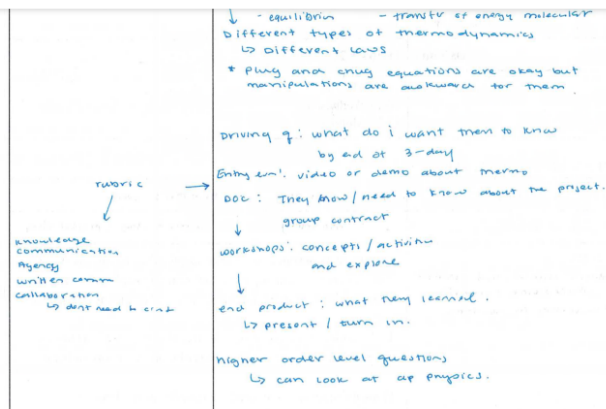 - equilibrin - transfr of energy molecular
Different types of thermodynamics
↳ Different laws
* plug and chug equations are okay but
manipulations are awkward for them.
Driving q : what do i want them to know
by ed of 3-day
Entry evn'. video or demo about thermo
DOC : They know / need to know about the project.
group contract
workshops : concepts / activitin
and explore
end product : what they learned.
↳ present / turn in.
higher order level questions
↳ can look at ap physics.
rubric →
knowledge
communication
Agency
written comm
collaboration
↳ dont need to